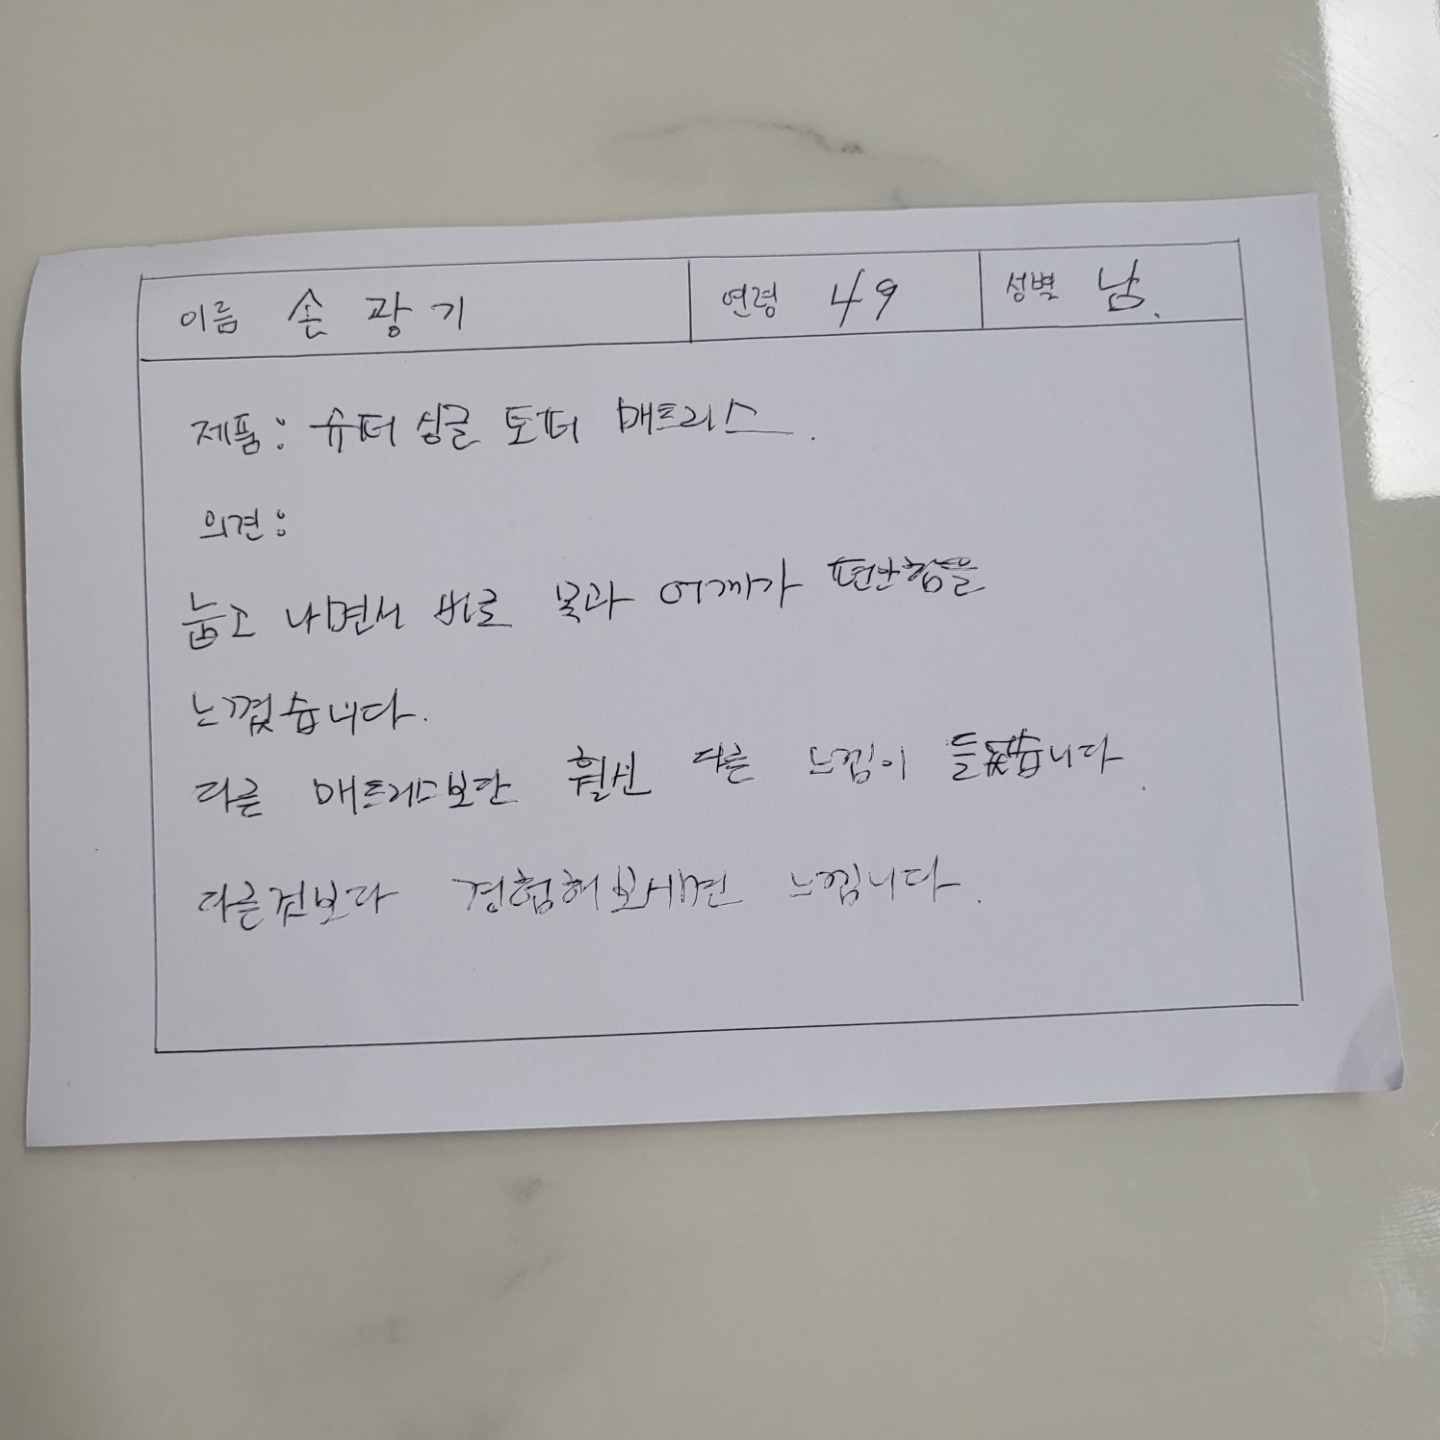 이름 손 광 기 연령 49 성별 남.
제품: 슈퍼 싱글 토퍼 매트리스.
의견:
눕고 나면서 바로 목과 어깨가 편안함을
느꼈습니다.
다른 매트리스보단 훨신 다른 느낌이 들었습니다.
다른것보다 경험해보시면 느낍니다.